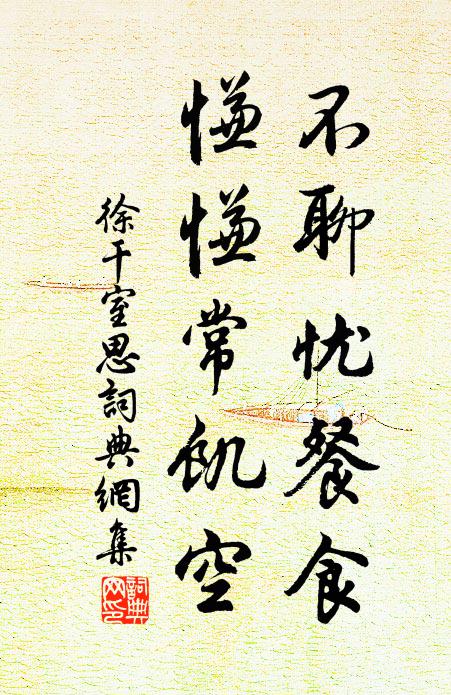 不聊忧餐食
慊慊常飢空
徐干室思詞典網集
詞典网印